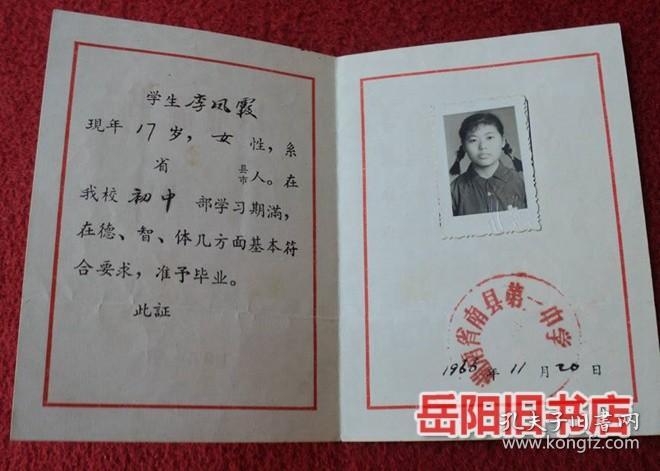 学生 李凤霞
现年 17 岁，女 性，系
省 县市人。在
我校 初中 部学习期满，
在德、智、体几方面基本符
合要求，准予毕业。
此証
湖南省南县第一中学
1966 年 11 月 20 日
岳阳旧书店
孔夫子旧书网
www.kongfz.com